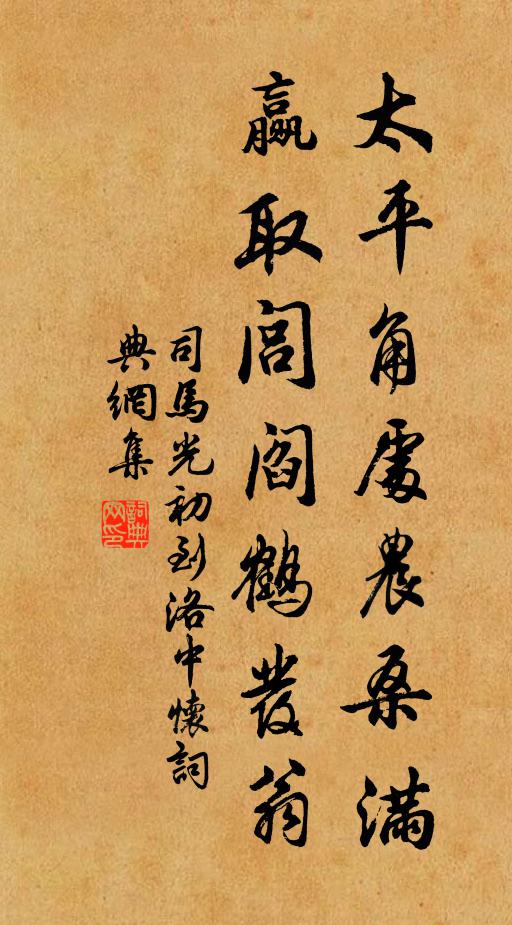 太平角處農桑滿
贏取閭閻鶴發翁
司馬光初到洛中懷詞
典網集
詞典
网印